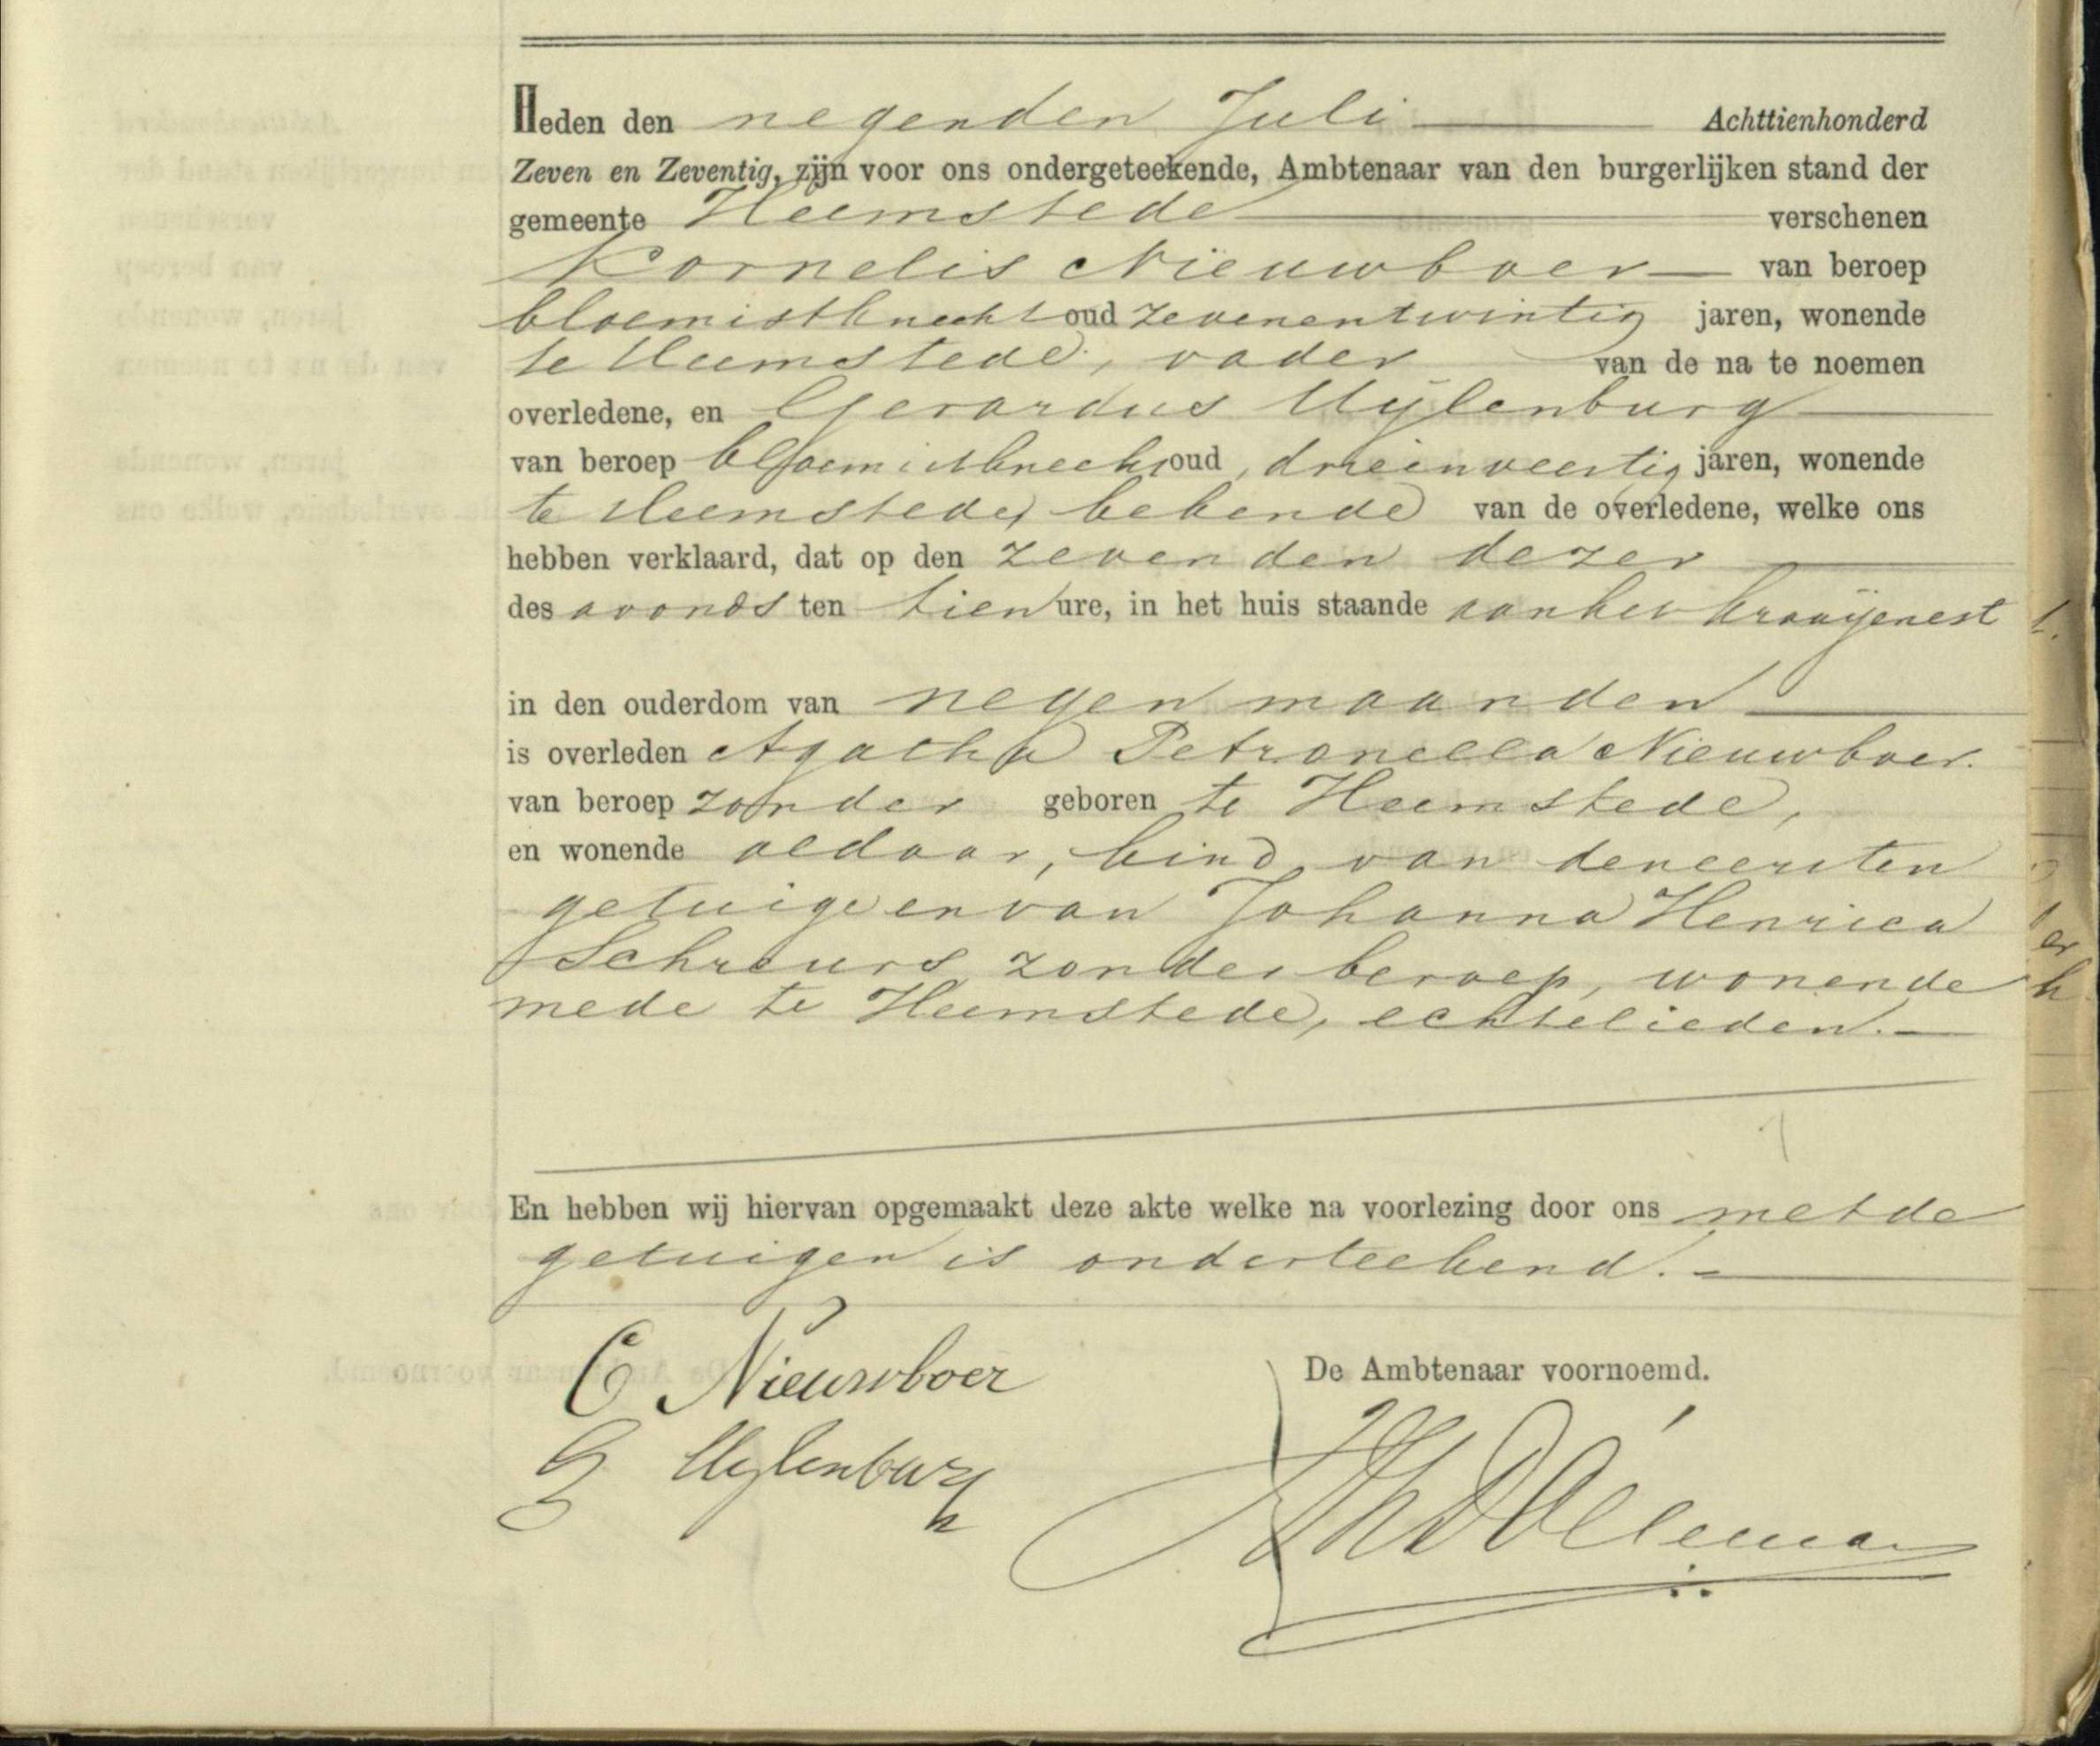 Heden den negenden Juli Achttienhonderd
Zeven en Zeventig, zijn voor ons ondergeteekende, Ambtenaar van den burgerlijken stand der
gemeente Heemstede verschenen
Kornelis Nieuwboer van beroep
bloemistknecht oud zevenentwintig jaren, wonende
te Heemstede, vader van de na te noemen
overledene, en Gerardus Uijlenburg
van beroep bloemistknecht oud, drieenveertig jaren, wonende
te Heemstede, bekende van de overledene, welke ons
hebben verklaard, dat op den zevenden dezer
des avonds ten tien ure, in het huis staande aan het kraaijenest
in den ouderdom van negen maanden
is overleden Agatha Petronella Nieuwboer.
van beroep zonder geboren te Heemstede,
en wonende aldaar, kind van den eersten
getuige en van Johanna Henrica
Schreurs zonder beroep, wonende
mede te Heemstede, echtelieden.
En hebben wij hiervan opgemaakt deze akte welke na voorlezing door ons met de
getuigen is onderteekend.
C Nieuwboer
De Ambtenaar voornoemd.
G Uylenburg